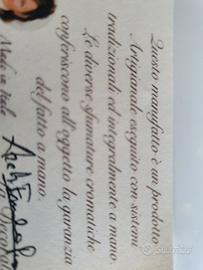 Questo manufatto è un prodotto
Artigianale eseguito con sistemi
tradizionali ed integralmente a mano.
Le diverse sfumature cromatiche
conferiscono all'oggetto la garanzia
del fatto a mano.
Made in Italy
subito